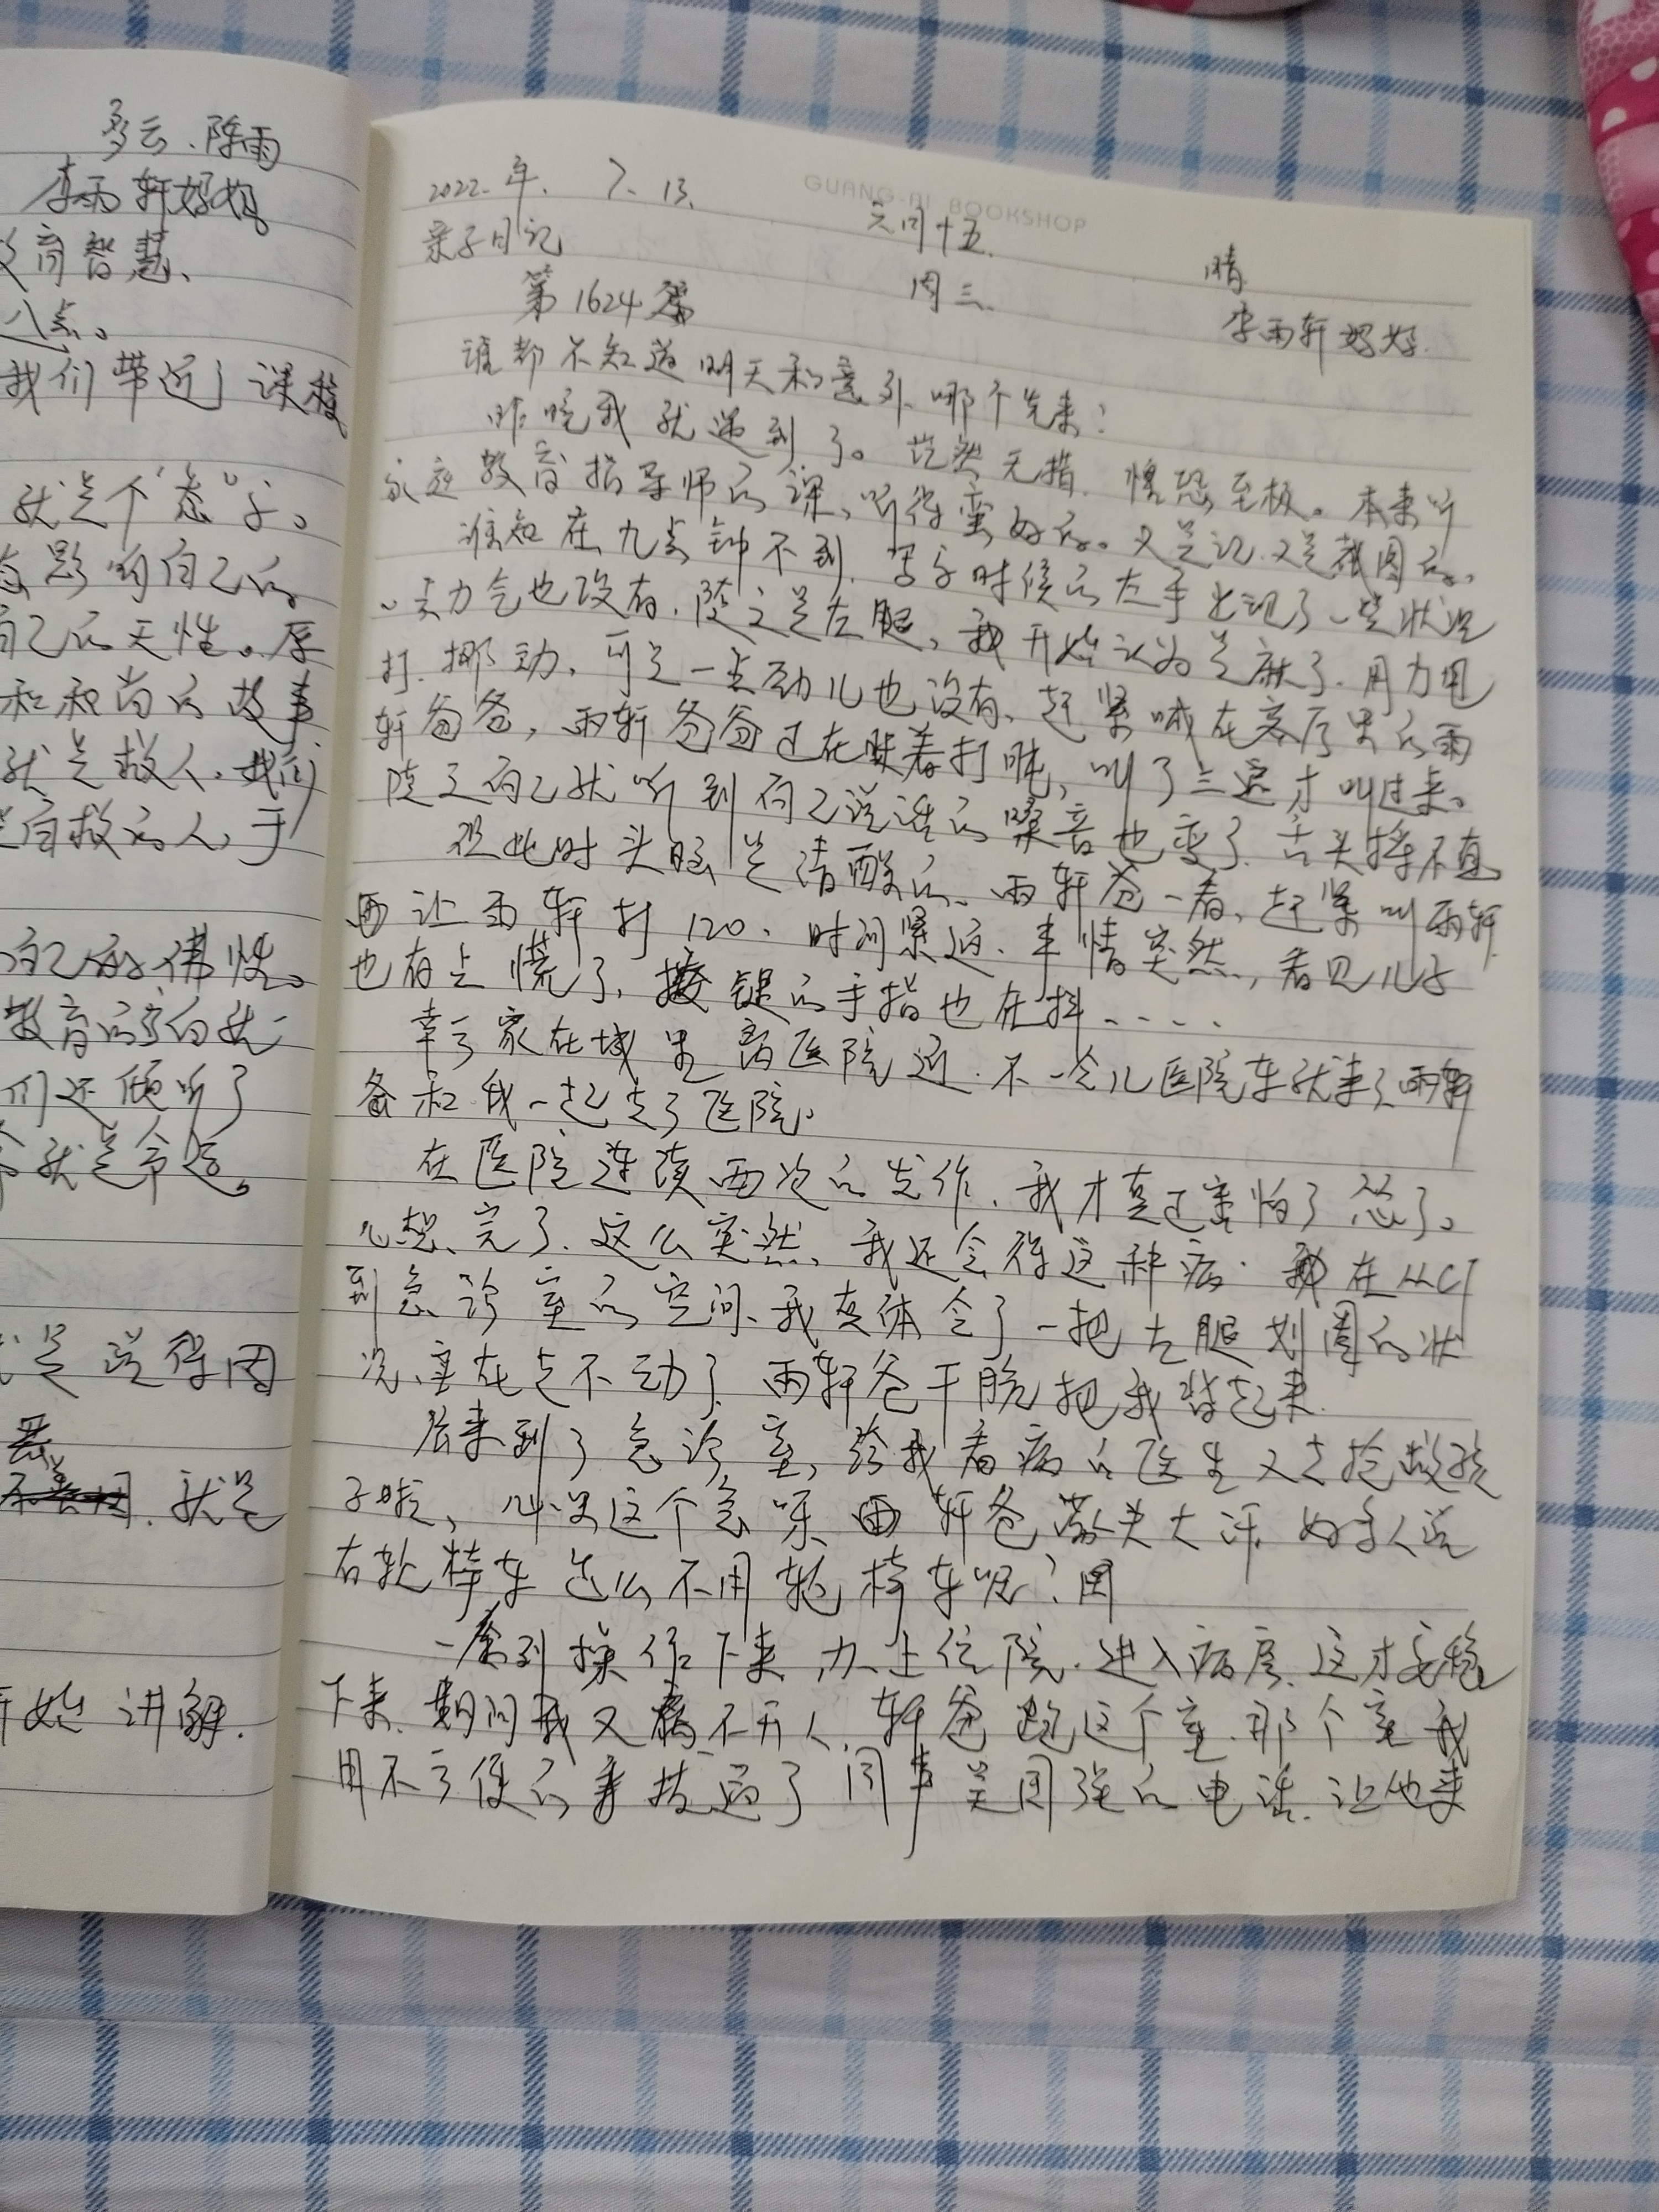 多云、阵雨
李雨轩妈妈
育智慧、
八点。
我们带近了课校
就是个“态”字。
态影响自己的
自己的天性。原
和和尚的故事
就是救人,我们
是自救的人,于
自己的佛性。
教育的方向就
们还倾听了
就是命运。
是觉得因
恶
就是
开始讲解.
GUANG-AI BOOKSHOP
2022.年. 7. 13. 六月十五. 晴
亲子日记 周三. 李雨轩妈妈.
第1624篇
谁都不知道明天和意外、哪个先来?
昨晚我就遇到了。茫然无措、惶恐至极。本来听
家庭教育指导师的课、听得蛮好的。又是记、又是截图的。
谁知在九点钟不到、写字时候的左手出现了一些状况
一点力气也没有.随之是左腿、我开始认为是麻了.用力甩
打.挪动、可是一点动儿也没有、赶紧喊在客厅里的雨
轩爸爸,雨轩爸爸正在眯着打盹,叫了三遍才叫过来。
随之自己就听到自己说话的嗓音也变了.舌头捋不直
但此时头脑是清醒的、雨轩爸一看、赶紧叫雨轩.
让雨轩打120、时间紧迫、事情突然,看见儿子
也有点慌了,按键的手指也在抖....
幸亏家在城里离医院近.不一会儿医院车就来了雨轩
爸和我一起去了医院。
在医院连续两次的发作、我才真正害怕了怂了。
心想、完了、这么突然、我还会得这种病.我在从CT
到急诊室的空间、我真体会了一把左腿划圈的状
况、实在走不动了.雨轩爸干脆把我背起来.
后来到了急诊室,给我看病的医生又去抢救孩
子啦、心里这个急呀.轩爸满头大汗.好多人说
有轮椅车怎么不用轮椅车呢?
一系列操作下来.办上住院.进入病房.这才安稳
下来.期间我又离不开人.轩爸跑这个室.那个室.我
用不方便的手拨通了同事吴国强的电话.让他来